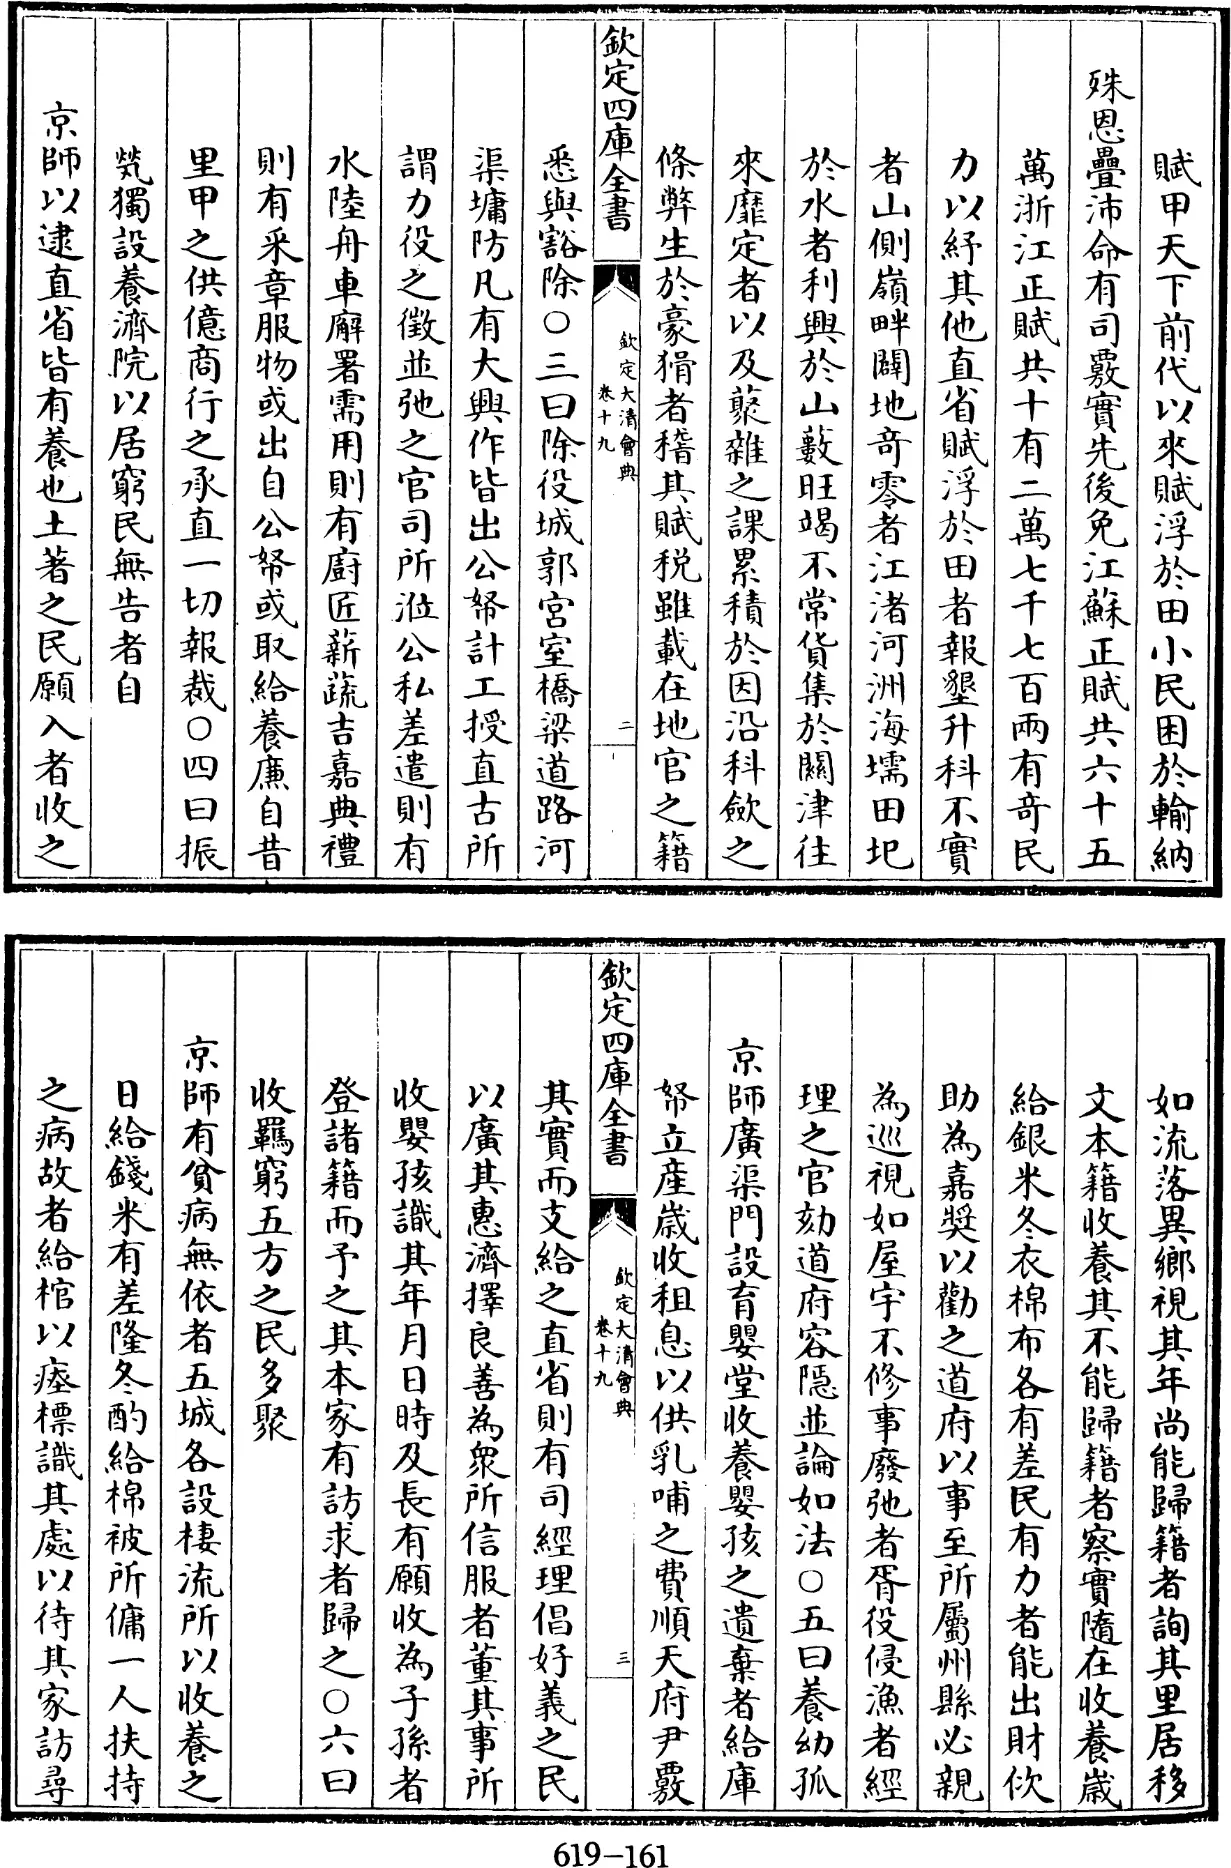 賦甲天下前代以來賦浮於田小民困於輸納
殊恩疊沛命有司覈實先後免江蘇正賦共六十五
萬浙江正賦共十有二萬七千七百兩有奇民
力以紓其他直省賦浮於田者報墾升科不實
者山側嶺畔闢地奇零者江渚河洲海壖田圯
於水者利興於山藪旺竭不常貨集於關津往
來靡定者以及叢雜之課累積於因沿科斂之
條弊生於豪猾者稽其賦稅雖載在地官之籍
欽定四庫全書
欽定大清會典
卷十九
二
悉與豁除○三曰除役城郭宮室橋梁道路河
渠墉防凡有大興作皆出公帑計工授直古所
謂力役之徵並弛之官司所涖公私差遣則有
水陸舟車廨署需用則有廚匠薪蔬吉嘉典禮
則有采章服物或出自公帑或取給養廉自昔
里甲之供億商行之承直一切報裁○四曰振
煢獨設養濟院以居窮民無告者自
京師以逮直省皆有養也土著之民願入者收之
如流落異鄉視其年尚能歸籍者詢其里居移
文本籍收養其不能歸籍者察實隨在收養歲
給銀米冬衣棉布各有差民有力者能出財佽
助為嘉獎以勸之道府以事至所屬州縣必親
為巡視如屋宇不修事廢弛者胥役侵漁者經
理之官劾道府容隱並論如法○五曰養幼孤
京師廣渠門設育嬰堂收養嬰孩之遺棄者給庫
帑立產歲收租息以供乳哺之費順天府尹覈
欽定四庫全書
欽定大清會典
卷十九
三
其實而支給之直省則有司經理倡好義之民
以廣其惠濟擇良善為衆所信服者董其事所
收嬰孩識其年月日時及長有願收為子孫者
登諸籍而予之其本家有訪求者歸之○六曰
收羈窮五方之民多聚
京師有貧病無依者五城各設棲流所以收養之
日給錢米有差隆冬酌給棉被所傭一人扶持
之病故者給棺以瘞標識其處以待其家訪尋
619-161